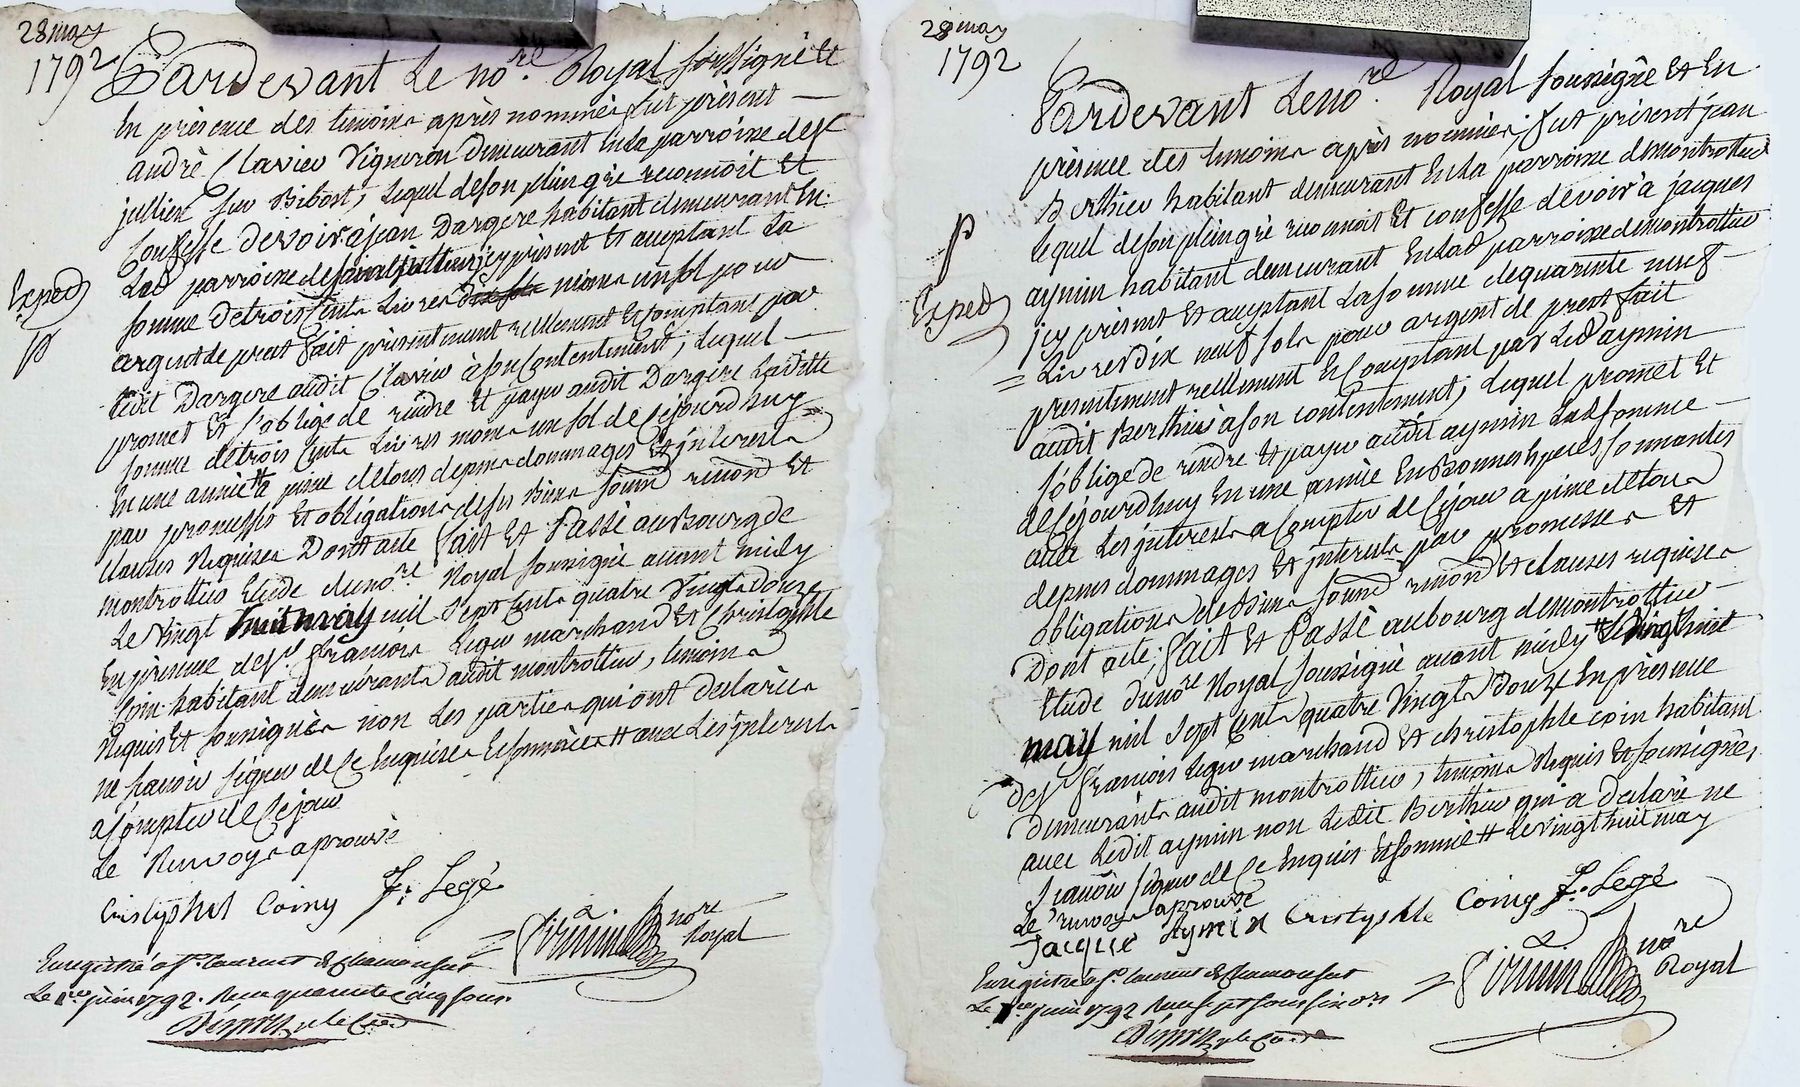 28 may
1792
Pardevant Le no.re Royal soussigné et
En présence des temoins après nommés fut présent
andré Clavier Vigneron demeurant En la parroisse de St
jullien sur Bibost, Lequel de son plein gré reconnoit Et
Confesse devoir à jean Dargere habitant demeurant En
Lad parroisse de jcy présent Et aceptant La
somme de trois Cents Livres moins un sol pour
argent de prest fait présentement réellement Et Comptant par
ledit Dargere audit Clavier à son Contentement; Lequel
promet Et s'oblige de rendre Et payer audit Dargere Laditte
somme de trois Cents Livres moins un sol de Cejourd'huy
En une année # à peine de tous depens dommages Et jnterests
par promesses Et obligations de ses Biens soumd renond Et
clauses Requises Dont acte fait Et Passé au Bourg de
montrottier Etude du no.re Royal soussigné avant midy
Le vingt huit may mil sept Cents quatre vingts douze
En présence de sr. françois Legée marchand Et Christophle
Coin habitant demeurants audit montrottier, temoins
Requis et soussignés non Les parties qui ont declarées
ne savoir signer de Ce Enquises Et sommées # avec Les jnterests
à Compter de Ce jour
Le Renvoys aprouvé
Cristyphel Coiny F: Legé
nore
Royal
Enregistré a St. Laurent de Chamousset
Le 1er juin 1792. Reçu quarante Cinq sous.
Exped
p
28 may
1792
Pardevant Le no.re Royal soussigné Et En
présence des temoins après nommés; fut présent jean
Berthier habitant demeurant En La parroisse de montrottier
Lequel de son plein gré reconnoit Et confesse devoir à jacques
aymin habitant demeurant En Lad parroisse de montrottier
jcy présent Et aceptant La somme de quarante neuf
= Livres dix neuf sols pour argent de prest fait
presentement réellement Et Comptant par Led aymin
audit Berthier à son contentement; Lequel promet Et
s'oblige de rendre Et payer audit aymin Lad somme
de Cejourd'huy En une année En Bonnes Especes sonnantes
avec Les jnterests a Compter de Ce jour a peine de tous
depens dommages Et jnterests par promesses Et
obligations de Biens soumd renond Et clauses requises
Dont acte; fait Et Passé au bourg de montrottier
Etude du nore Royal soussigné avant midy #
may mil sept Cents quatre vingts Douze En présence
de sr. françois Legée marchand Et christophle coin habitant
demeurants audit montrottier, temoins Requis Et soussignés,
avec Ledit aymin non Ledit Berthier qui a declaré ne
sçavoir signer de Ce Enquis Et sommé # Le vingt huit may
Le renvoys aprouvé
Jacque Aymin Cristyphle Coiny F: Legé
nore
Royal
Enregistré a St. Laurent de Chamousset
Le 1er juin 1792 Reçu
p
Exped